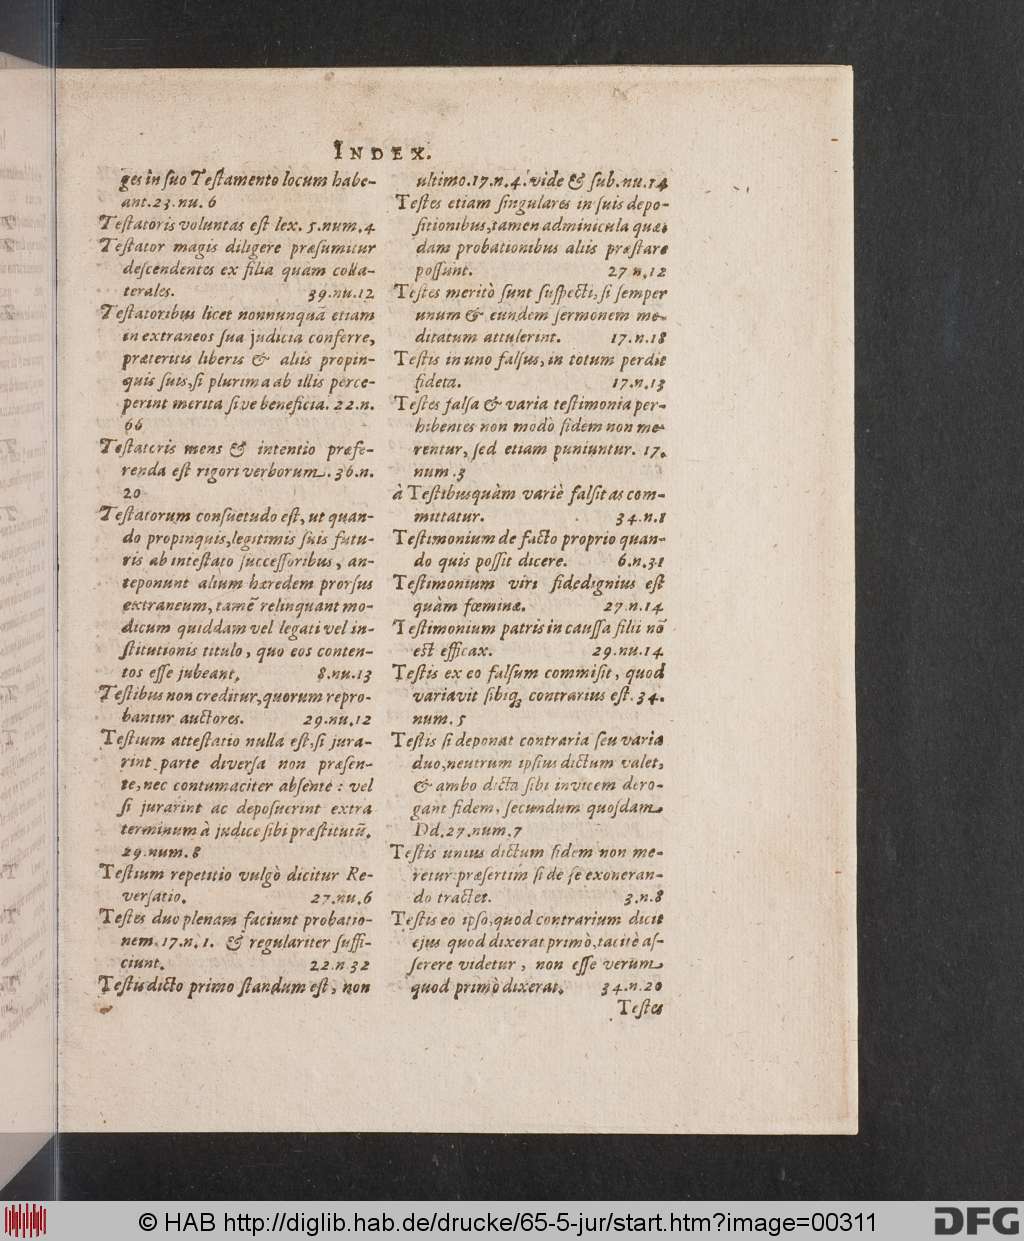 INDEX.
ges in suo Testamento locum habe-
ant. 23. nu. 6
Testatoris voluntas est lex. 5. num. 4
Testator magis diligere præsumitur
descendentes ex filia quàm colla-
terales. 39. nu. 12
Testatoribus licet nonnunquã etiam
in extraneos sua judicia conferre,
præteritis liberis & aliis propin-
quis suis, si plurima ab illis perce-
perint merita sive beneficia. 22. n.
66
Testatoris mens & intentio præfe-
renda est rigori verborum. 36. n.
20
Testatorum consuetudo est, ut quan-
do propinquis, legitimis suis futu-
ris ab intestato successoribus, an-
teponunt alium hæredem prorsus
extraneum, tamẽ relinquant mo-
dicum quiddam vel legati vel in-
stitutionis titulo, quo eos conten-
tos esse jubeant, 8. nu. 13
Testibus non creditur, quorum repro-
bantur auctores. 29. nu. 12
Testium attestatio nulla est, si jura-
rint parte diversa non præsen-
te, nec contumaciter absente: vel
si jurarint ac deposuerint extra
terminum à judice sibi præstitutũ.
29. num. 8
Testium repetitio vulgò dicitur Re-
versatio. 27. nu. 6
Testes duo plenam faciunt probatio-
nem. 17. n. 1. & regulariter suffi-
ciunt. 22. n 32
Testis dicto primo standum est, non
ultimo. 17. n. 4. vide & sub. nu. 14
Testes etiam singulares in suis depo-
sitionibus, tamen adminicula quæ-
dam probationibus aliis præstare
possunt. 27 n. 12
Testes meritò sunt suspecti, si semper
unum & eundem sermonem me-
ditatum attulerint. 17. n. 18
Testis in uno falsus, in totum perdit
fidem. 17. n. 13
Testes falsa & varia testimonia per-
hibentes non modò fidem non me-
rentur, sed etiam puniuntur. 17.
num. 3
à Testibus quàm variè falsitas com-
mittatur. 34. n. 1
Testimonium de facto proprio quan-
do quis possit dicere. 6. n. 31
Testimonium viri fidedignius est
quàm fœminæ. 27. n. 14
Testimonium patris in caussa filii nõ
est efficax. 29. nu. 14
Testis ex eo falsum commisit, quod
variavit sibiq; contrarius est. 34.
num. 5
Testis si deponat contraria seu varia
duo, neutrum ipsius dictum valet,
& ambo dicta sibi invicem dero-
gant fidem, secundum quosdam
Dd. 27. num. 7
Testis unius dictum fidem non me-
retur: præsertim si de se exoneran-
do tractet. 3. n. 8
Testis eo ipso, quod contrarium dicit
ejus quod dixerat primò, tacitè as-
serere videtur, non esse verum
quod primò dixerat. 34. n. 20
Testes
© HAB http://diglib.hab.de/drucke/65-5-jur/start.htm?image=00311
DFG